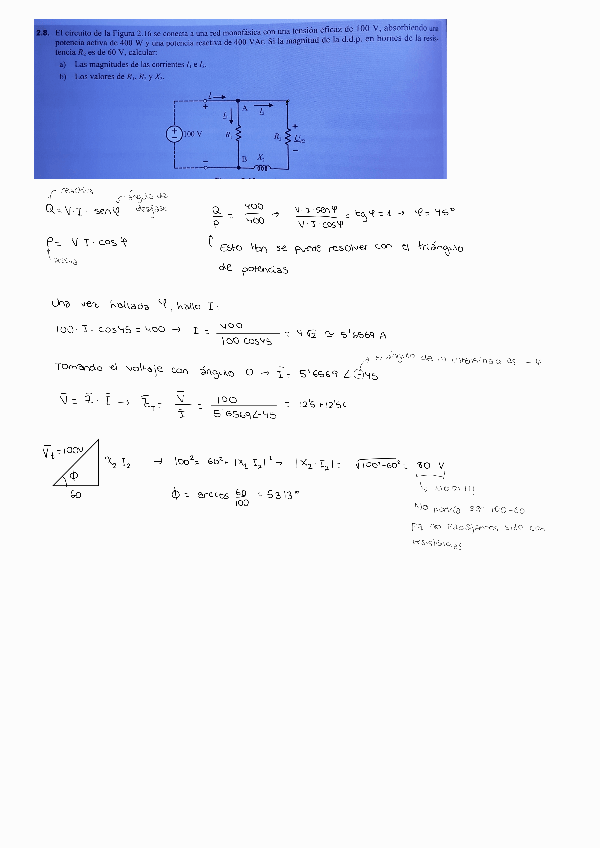 2.8. El circuito de la Figura 2.16 se conecta a una red monofásica con una tensión eficaz de 100 V, absorbiendo una
potencia activa de 400 W y una potencia reactiva de 400 VAr. Si la magnitud de la d.d.p. en bornes de la resis-
tencia R₂ es de 60 V, calcular:
a) Las magnitudes de las corrientes I₁ e I₂.
b) Los valores de R₁, R₂ y X₂.
I
A
I₁
I₂
100 V
R₁
R₂
B
X₂
ángulo de
desfase
Q = V·I· senφ
Q/P = 400/400 → V·I·senφ / V·I·cosφ = tgφ = 1 → φ = 45°
P = V·I·cosφ
Esto tbn se puede resolver con el triángulo
de potencias
Una vez hallada φ, hallo I·
100·I·cos45 = 400 → I = 400 / 100 cos45 = 4√2 ≃ 5'6569 A
Tomando el voltaje con ángulo 0 → I = 5'6569 ∠-45
V = Z·I → Z_T = V/I = 100 / 5'6569∠-45 = 12'5+12'5j
V_t = 100V
X₂ I₂
ϕ
60
→ 100² = 60² + |X₂ I₂|² → |X₂·I₂| = √100²-60² = 80 V
ϕ = arccos 60/100 = 53'13°
No podría ser 100-60